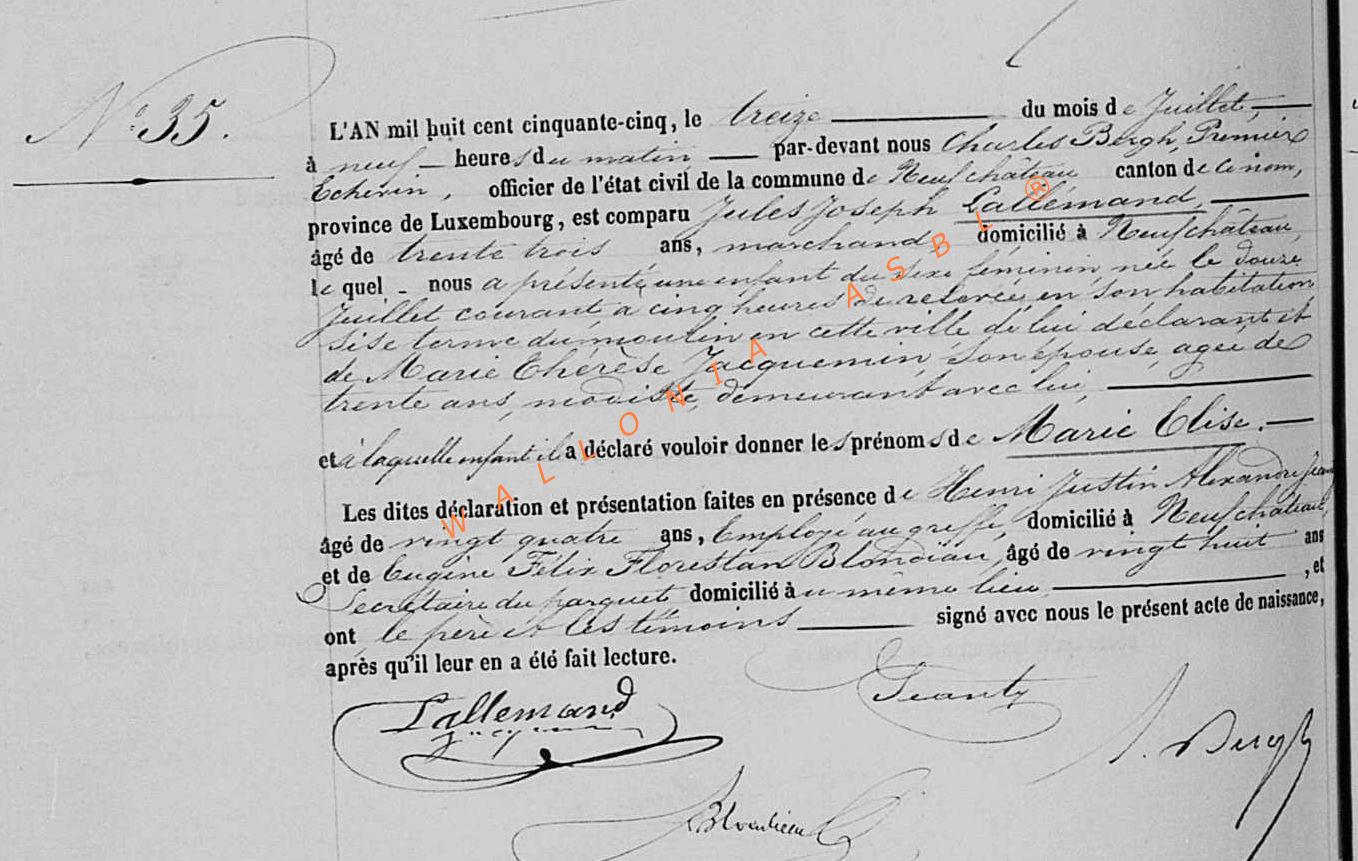 N° 35.
L'AN mil huit cent cinquante-cinq, le treize du mois de Juillet,
à neuf heures du matin par-devant nous Charles Bergh, Premier
Echevin, officier de l'état civil de la commune de Neufchâteau canton de ce nom,
province de Luxembourg, est comparu Jules Joseph Lallemand,
âgé de trente trois ans, marchand, domicilié à Neufchâteau,
le quel nous a présenté une enfant du sexe féminin, née le douze
Juillet courant à cinq heures de relevée, en son habitation
sise terme du moulin en cette ville de lui déclarant et
de Marie Thérèse Jacquemin, son épouse, agée de
trente ans, modiste, demeurant avec lui,
et à laquelle enfant il a déclaré vouloir donner les prénoms de Marie Elise.
Les dites déclaration et présentation faites en présence de Henri Justin Alexandre
âgé de vingt quatre ans, Employé au greffe, domicilié à Neufchâteau,
et de Eugène Félix Florestan Blondiau, âgé de vingt huit ans
Secrétaire du parquet domicilié au même lieu, , et
ont le père et les témoins signé avec nous le présent acte de naissance,
après qu'il leur en a été fait lecture.
Lallemand
Jacquemin
Jeanty
Bergh
WALLONIA ASBL ®